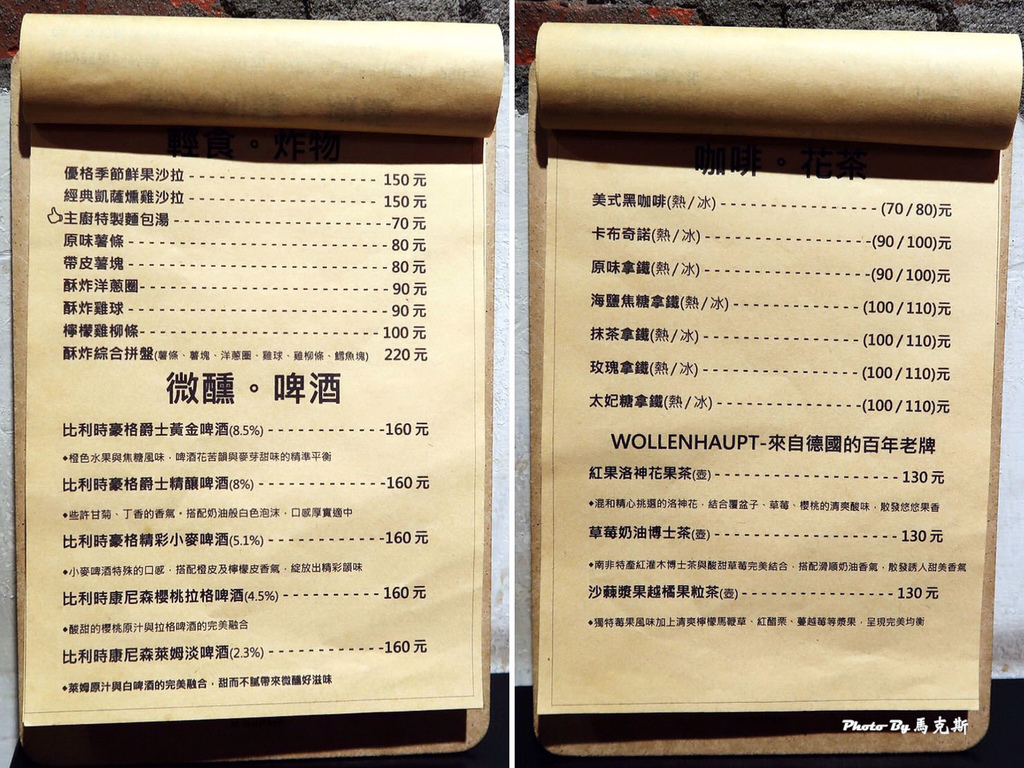 輕食。炸物
優格季節鮮果沙拉 - - - - - - - - - - - - - - - - - - 150 元
經典凱薩燻雞沙拉 - - - - - - - - - - - - - - - - - - 150 元
主廚特製麵包湯 - - - - - - - - - - - - - - - - - - - -70 元
原味薯條 - - - - - - - - - - - - - - - - - - - - - - - - 80 元
帶皮薯塊 - - - - - - - - - - - - - - - - - - - - - - - - 80 元
酥炸洋蔥圈- - - - - - - - - - - - - - - - - - - - - - - 90 元
酥炸雞球 - - - - - - - - - - - - - - - - - - - - - - - - 90 元
檸檬雞柳條- - - - - - - - - - - - - - - - - - - - - - 100 元
酥炸綜合拼盤(薯條、薯塊、洋蔥圈、雞球、雞柳條、鱈魚塊) 220 元
微醺。啤酒
比利時豪格爵士黃金啤酒(8.5%) - - - - - - - - - - -160 元
◆橙色水果與焦糖風味，啤酒花苦韻與麥芽甜味的精準平衡
比利時豪格爵士精釀啤酒(8%) - - - - - - - - - - - -160 元
◆些許甘菊、丁香的香氣。搭配奶油般白色泡沫，口感厚實適中
比利時豪格精彩小麥啤酒(5.1%) - - - - - - - - - - -160 元
◆小麥啤酒特殊的口感，搭配橙皮及檸檬皮香氣，綻放出精彩韻味
比利時康尼森櫻桃拉格啤酒(4.5%) - - - - - - - - - -160 元
◆酸甜的櫻桃原汁與拉格啤酒的完美融合
比利時康尼森萊姆淡啤酒(2.3%) - - - - - - - - - - -160 元
◆萊姆原汁與白啤酒的完美融合，甜而不膩帶來微醺好滋味
咖啡。花茶
美式黑咖啡(熱/冰) - - - - - - - - - - - - - - - (70/80)元
卡布奇諾(熱/冰) - - - - - - - - - - - - - - - -(90/100)元
原味拿鐵(熱/冰) - - - - - - - - - - - - - - - -(90/100)元
海鹽焦糖拿鐵(熱/冰) - - - - - - - - - - - - (100/110)元
抹茶拿鐵(熱/冰) - - - - - - - - - - - - - - - (100/110)元
玫瑰拿鐵(熱/冰) - - - - - - - - - - - - - - - (100/110)元
太妃糖拿鐵(熱/冰) - - - - - - - - - - - - - -(100/110)元
WOLLENHAUPT-來自德國的百年老牌
紅果洛神花果茶(壺) - - - - - - - - - - - - - - - - - - 130 元
◆混和精心挑選的洛神花，結合覆盆子、草莓、櫻桃的清爽酸味，散發悠悠果香
草莓奶油博士茶(壺) - - - - - - - - - - - - - - - - - - 130 元
◆南非特產紅灌木博士茶與酸甜草莓完美結合，搭配滑順奶油香氣，散發誘人甜美香氣
沙蕀漿果越橘果粒茶(壺) - - - - - - - - - - - - - - - 130 元
◆獨特莓果風味加上清爽檸檬馬鞭草、紅醋栗、蔓越莓等漿果，呈現完美均衡
Photo By 馬克斯